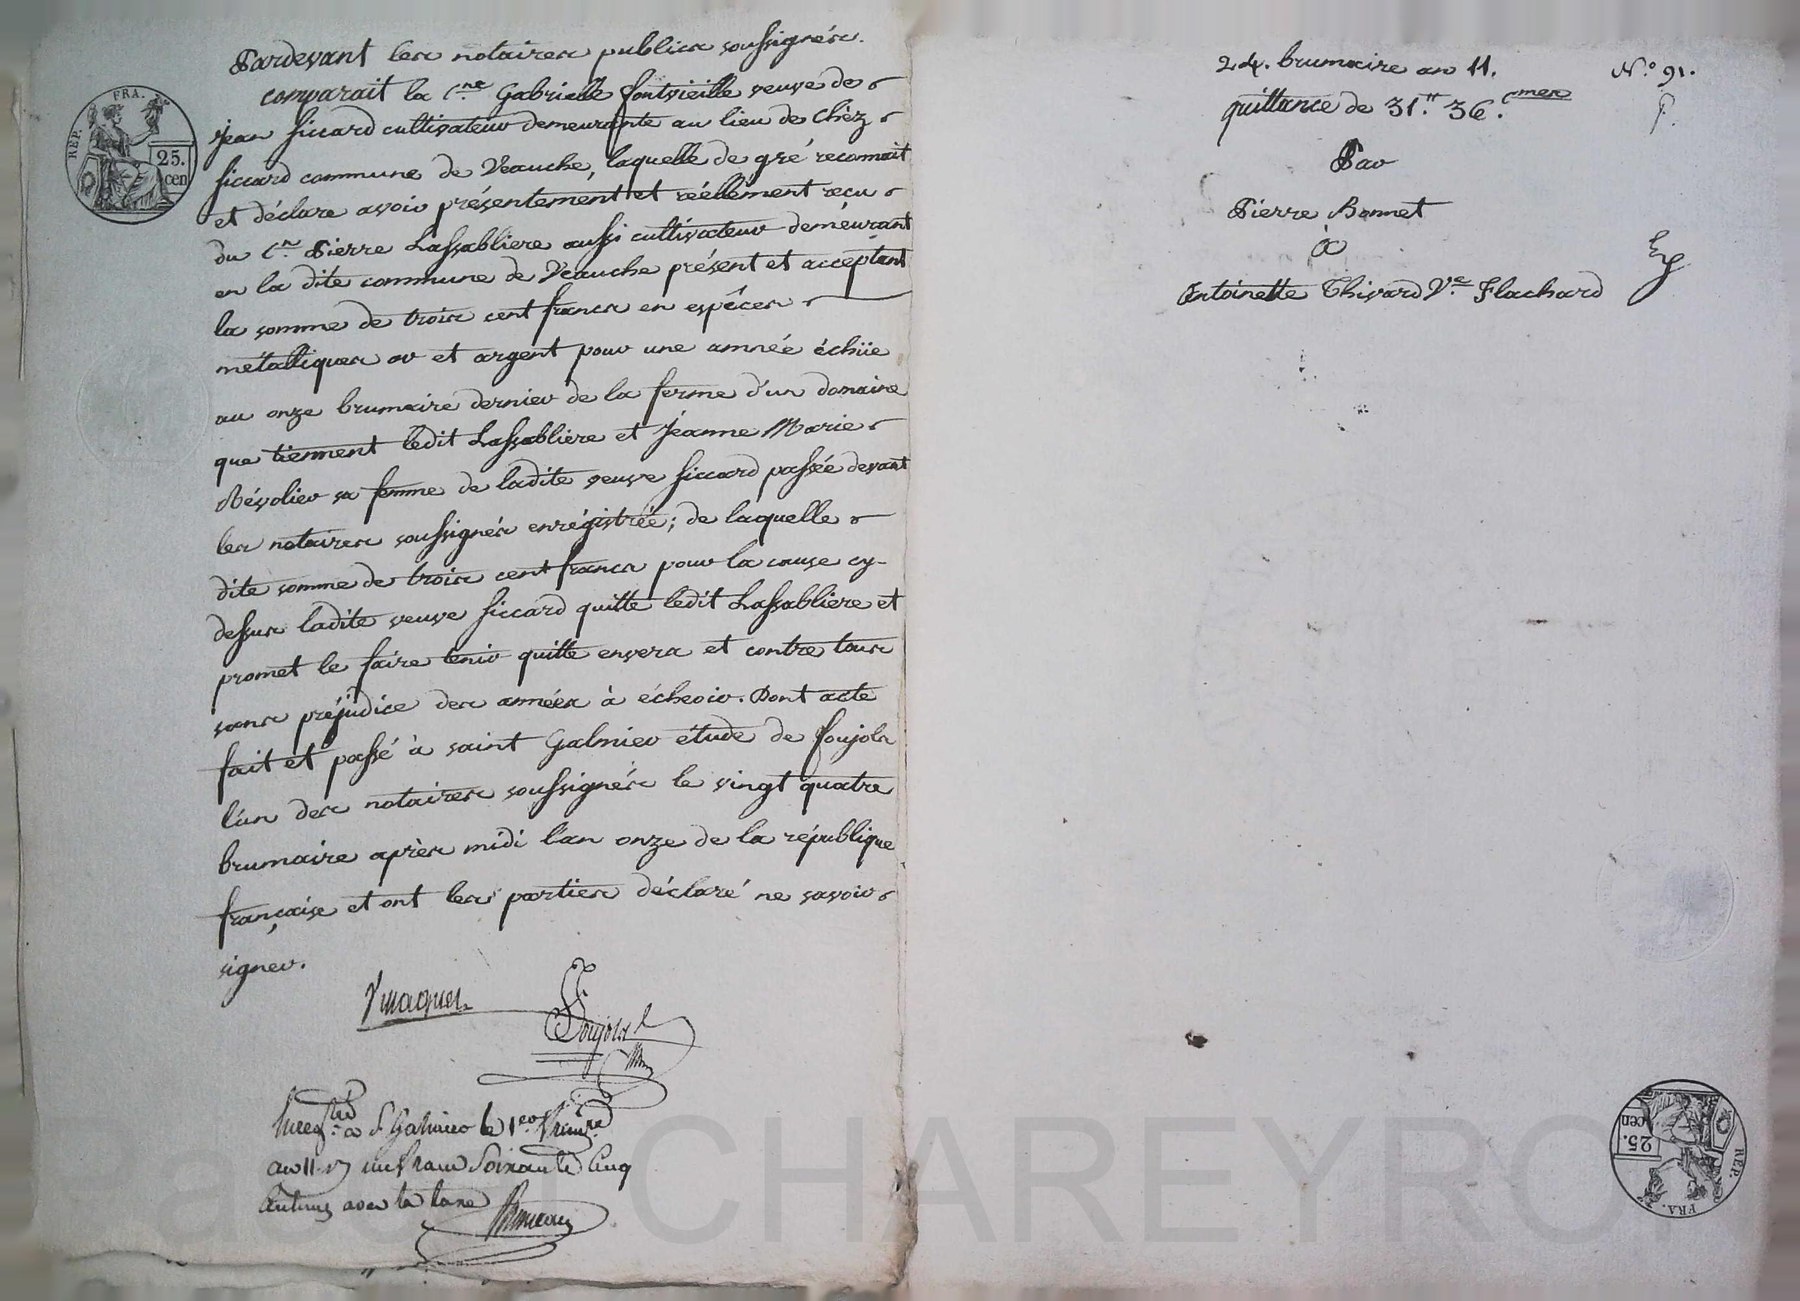 Pardevant les notaires publics soussignés.
comparait la C.ne Gabrielle fontvieille veuve de
jean siccard cultivateur demeurante au lieu de chéz
siccard commune de Veauche, laquelle de gré reconnait
et déclare avoir présentement et réellement reçu
du C.n Pierre Lassabliere aussi cultivateur deméurant
en la dite commune de Veauche présent et acceptant
la somme de trois cent francs en espêces
métalliques or et argent pour une année échüe
au onze brumaire dernier de la ferme d'un domaine
que tiennent ledit Lassabliere et Jéanne Marie
Révolier sa femme de ladite veuve siccard passée devant
les notaires soussignés enrégistrée; de laquelle
dite somme de trois cent francs pour la cause cy-
dessus ladite veuve siccard quitte ledit Lassabliere et
promet le faire tenir quitte envers et contre tous
sans préjudice des années à écheoir. Dont acte
fait et passé à saint Galmier étude de soujols
l'un des notaires soussignés le vingt quatre
brumaire après midi l'an onze de la république
française et ont les parties déclaré ne savoir
signer.
Soujols
à St Galmier le 1er frimre
an 11 un franc soixante cinq
centimes avec la taxe
24. brumaire an 11. N.º 91.
quittance de 31.tt 36.cmes
Par
Pierre Bonnet
à
Antoinette Thivard V.e Flachard
REP. FRA.
25.
cen
REP. FRA.
25.
cen
Pascal CHAREYRON